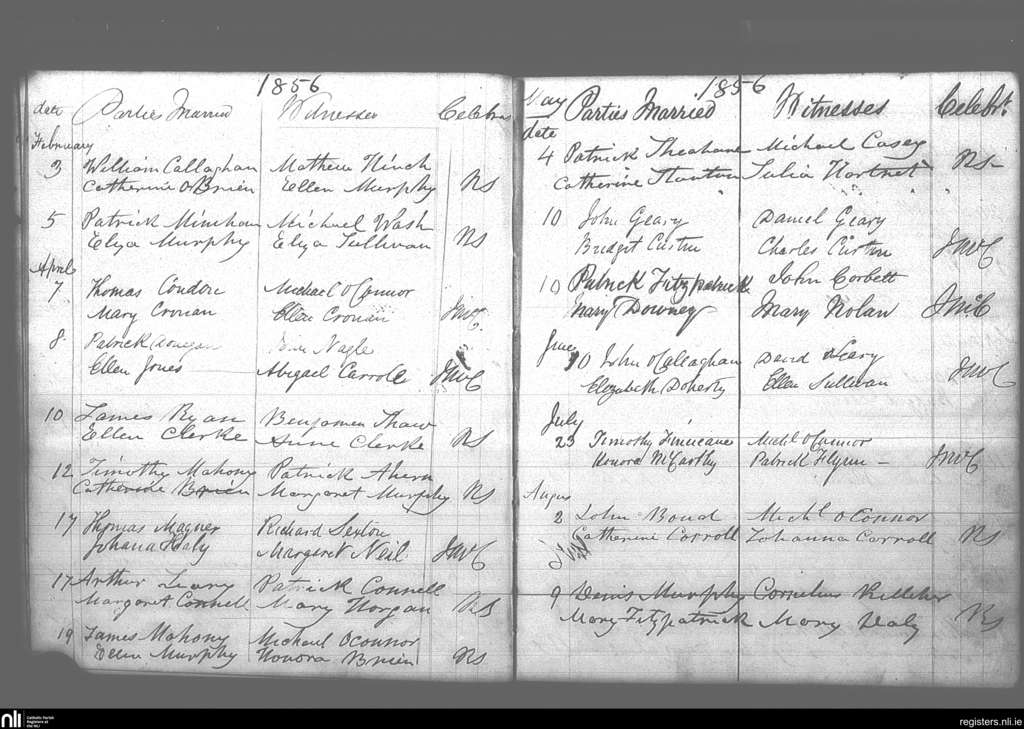 1856
date Parties Married Witnesses Celebrn
February
3 William Callaghan Mathew Hinch
Catherine O Brien Ellen Murphy RS
5 Patrick Minihan Michael Wash
Elyza Murphy Elyza Sullivan RS
April
7 Thomas Condon Michael O Connor
Mary Cronan Ellen Cronan JMcC
8 Patrick Nagle
Ellen Jones Abigael Carroll JMcC
10 James Ryan Benjamen Thaw
Ellen Clerke Anne Clerke RS
12 Timothy Mahony Patrick Ahern
Catherine Brien Margaret Murphy RS
17 Thomas Magner Richard Sexton
Johana Healy Margaret Neil JMcC
17 Arthur Leary Patrick Connell
Margaret Connell Mary Horgan RS
19 James Mahony Michael Oconnor
Ellen Murphy Honora Brien RS
1856
May Parties Married Witnesses Celebrt
date
4 Patrick Theahane Michael Casey
Catherine Stanton Julia Hartnet RS
10 John Geary Daniel Geary
Bridget Curtin Charles Curtin JMcC
10 Patrick Fitzpatrick John Corbett
Mary Downey Mary Nolan JMcC
June
10 John O Callaghan David Leary
Elizabeth Doherty Ellen Sullivan JMcC
July
23 Timothy Finucane Michl O Connor
Honora McCarthy Patrick Flynn JMcC
Augus
2 John Boud Michl O Connor
Catherine Carroll Johanna Carroll RS
9 Denis Murphy Cornelius Kelleher
Mary Fitzpatrick Mary Daly RS
nli
Catholic Parish
Registers at
the NLI
registers.nli.ie